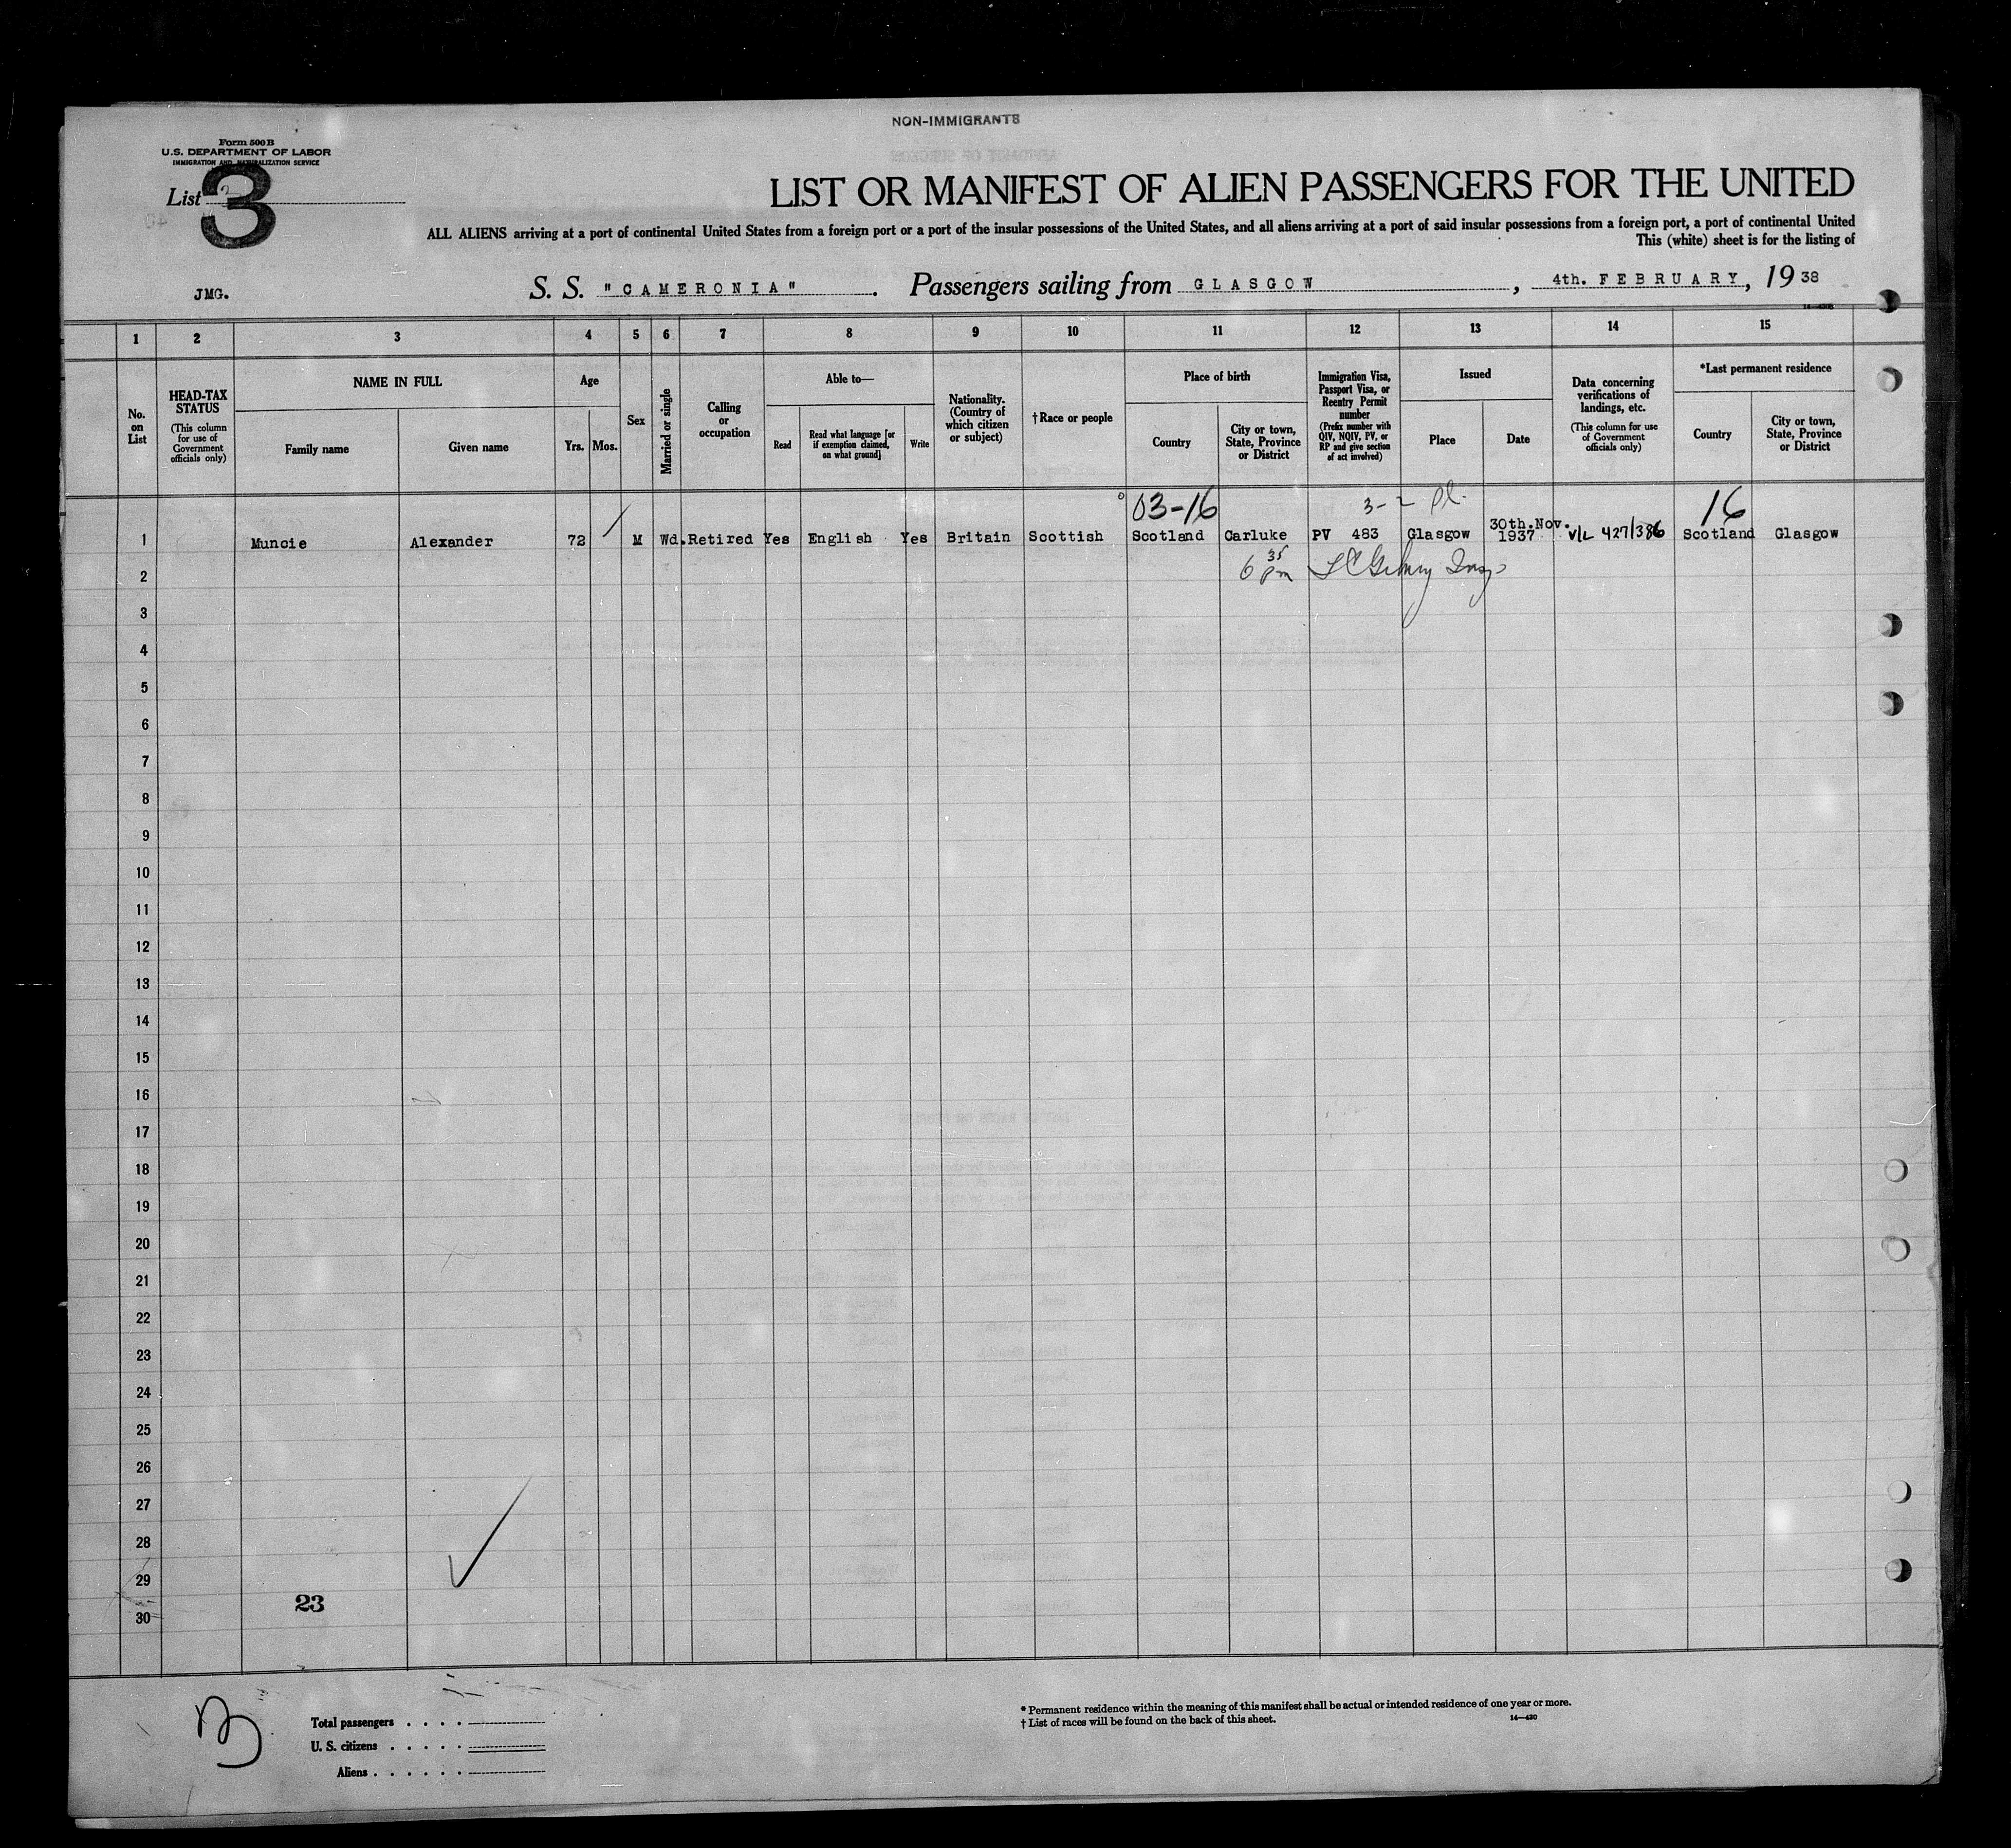 NON-IMMIGRANTS
Form 500 B
U.S. DEPARTMENT OF LABOR
IMMIGRATION AND NATURALIZATION SERVICE
List 3
LIST OR MANIFEST OF ALIEN PASSENGERS FOR THE UNITED
ALL ALIENS arriving at a port of continental United States from a foreign port or a port of the insular possessions of the United States, and all aliens arriving at a port of said insular possessions from a foreign port, a port of continental United
This (white) sheet is for the listing of
JMG. S. S. "CAMERONIA". Passengers sailing from GLASGOW, 4th. FEBRUARY, 1938
1 2 3 4 5 6 7 8 9 10 11 12 13 14 15
No. on List
HEAD-TAX STATUS (This column for use of Government officials only)
NAME IN FULL
Family name
Given name
Age
Yrs. Mos.
Sex
Married or single
Calling or occupation
Able to—
Read
Read what language [or if exemption claimed, on what ground]
Write
Nationality. (Country of which citizen or subject)
†Race or people
Place of birth
Country
City or town, State, Province or District
Immigration Visa, Passport Visa, or Reentry Permit number (Prefix number with QIV, NQIV, PV, or RP and give section of act involved)
Issued
Place
Date
Data concerning verifications of landings, etc. (This column for use of Government officials only)
*Last permanent residence
Country
City or town, State, Province or District
03-16 3-2 pl. 16
1 Muncie Alexander 72 M Wd. Retired Yes English Yes Britain Scottish Scotland Carluke PV 483 Glasgow 30th.Nov. 1937 V/L 427/386 Scotland Glasgow
2 6 35 pm
3
4
5
6
7
8
9
10
11
12
13
14
15
16
17
18
19
20
21
22
23
24
25
26
27
28
29
23
30
Total passengers
U. S. citizens
Aliens
* Permanent residence within the meaning of this manifest shall be actual or intended residence of one year or more.
† List of races will be found on the back of this sheet.
14—430